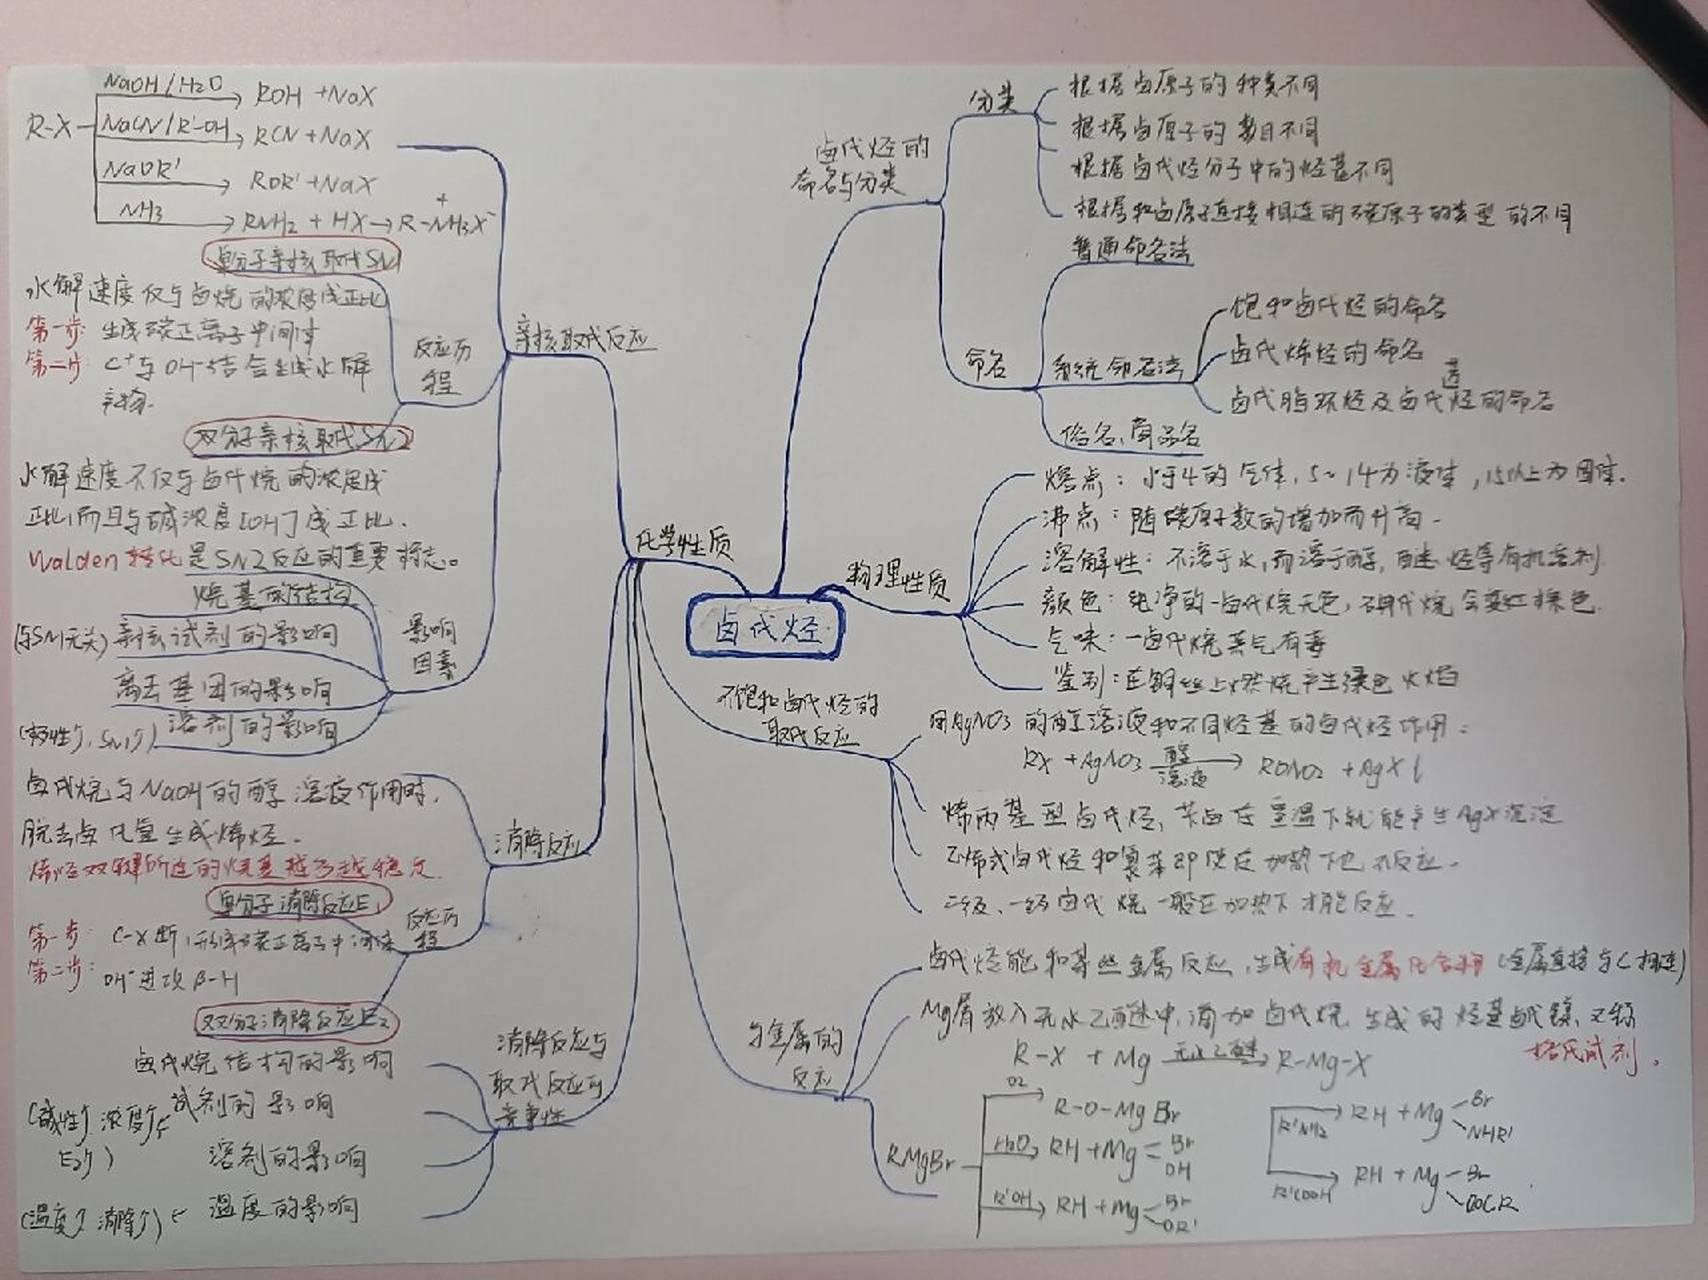 卤代烃
卤代烃的
命名与分类
分类
根据卤原子的种类不同
根据卤原子的数目不同
根据卤代烃分子中的烃基不同
根据和卤原子连接相连的碳原子的类型的不同
命名
普通命名法
系统命名法
饱和卤代烃的命名
卤代烯烃的命名
卤代脂环烃及卤代芳烃的命名
俗名、商品名
物理性质
熔点:小于4的气体,5~14为液体,15以上为固体.
沸点:随碳原子数的增加而升高.
溶解性:不溶于水,而溶于醇,醚、烃等有机溶剂.
颜色:纯净的一卤代烷无色,碘代烷会变红棕色.
气味:一卤代烷蒸气有毒
鉴别:在铜丝上燃烧产生绿色火焰
不饱和卤代烃的
取代反应
用AgNO3的醇溶液和不同烃基的卤代烃作用:
RX + AgNO3 醇溶液→ RONO2 + AgX↓
烯丙基型卤代烃、苄卤在室温下就能产生AgX沉淀
乙烯式卤代烃和氯苯即使在加热下也不反应.
二级、一级卤代烷一般在加热下才能反应.
与金属的
反应
卤代烃能和某些金属反应,生成有机金属化合物(金属直接与C相连)
Mg屑放入无水乙醚中,滴加卤代烷,生成的烃基卤代镁,又称
格氏试剂。
R-X + Mg 无水乙醚→ R-Mg-X
RMgBr
O2→ R-O-MgBr
H2O→ RH + Mg Br OH
R'OH→ RH + Mg Br OR'
R'NH2→ RH + Mg Br NHR'
R'COOH→ RH + Mg Br
化学性质
亲核取代反应
R-X
NaOH/H2O→ ROH + NaX
NaCN/R'-OH→ RCN + NaX
NaOR'→ ROR' + NaX
NH3→ RNH2 + HX → R-N+H3X-
反应历
程
单分子亲核取代SN1
水解速度仅与卤烷的浓度成正比
第一步:生成碳正离子中间体
第二步:C+与OH-结合生成水解
产物.
双分子亲核取代SN2
水解速度不仅与卤代烷的浓度成
正比,而且与碱浓度[OH-]成正比.
Walden转化是SN2反应的重要标志。
影响
因素
烷基的结构
(与SN1无关)亲核试剂的影响
离去基团的影响
(极性↑,SN1↑)溶剂的影响
消除反应
卤代烷与NaOH的醇溶液作用时,
脱去卤化氢生成烯烃.
烯烃双键所连的烷基越多越稳定
反应历
程
单分子消除反应E1
第一步:C-X断,形成碳正离子中间体
第二步:OH-进攻β-H
双分子消除反应E2
消除反应与
取代反应的
竞争性
卤代烷结构的影响
(碱性↑浓度↑ E2↑)试剂的影响
溶剂的影响
(温度↑消除↑)温度的影响